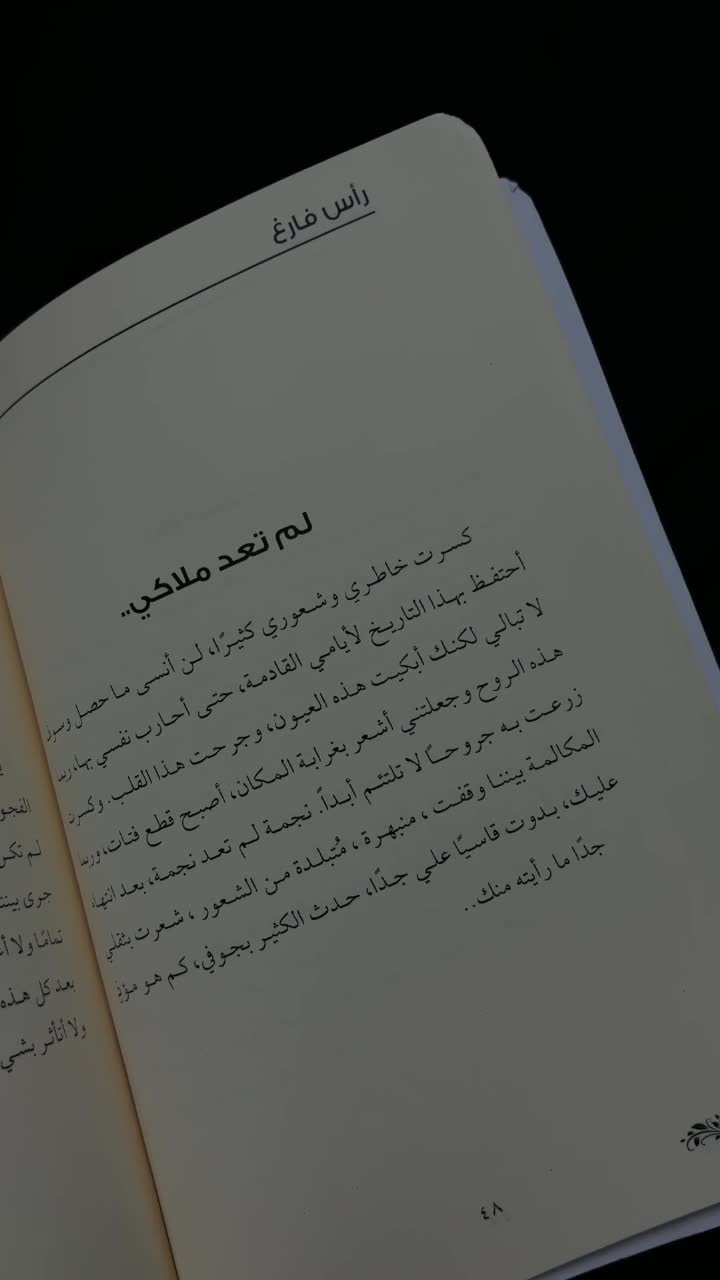 رأس فارغ
لم تعد ملاكي..
كسرت خاطري وشعوري كثيرًا، لن أنسى ما حصل وسوف
أحتفظ بهذا التاريخ لأيامي القادمة، حتى أحارب نفسي بها، ربما
لا تبالي لكنك أبكيت هذه العيون، وجرحت هذا القلب. وكسرت
هذه الروح وجعلتني أشعر بغرابة المكان، أصبح قطع فتات، وربما
زرعت به جروحًا لا تلتئم أبداً. نجمة لم تعد نجمة، بعد انتهاء
المكالمة بيننا وقفت، منبهرة، مُتبلدة من الشعور، شعرت بثقلي
عليك، بدوت قاسيًا علي جدًا، حدث الكثير بجوفي، كم هو مؤذٍ
جدًا ما رأيته منك..
٤٨
لم
جرى بيننا
تمامًا ولا
بعد كل هذه
ولا أتأثر بشي